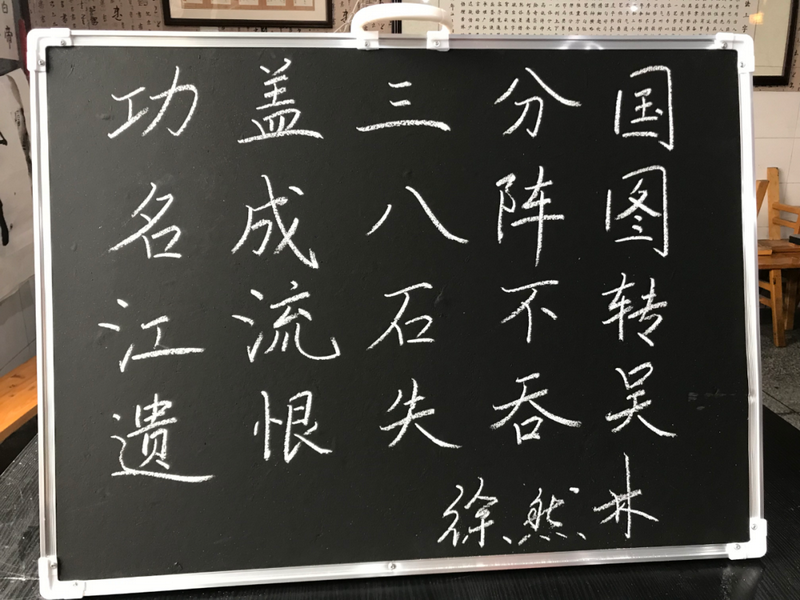 功盖三分国
名成八阵图
江流石不转
遗恨失吞吴
徐然林